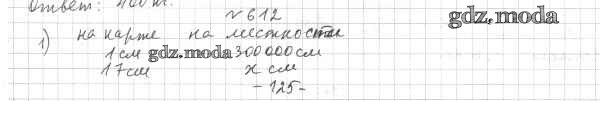 Ответ: 400 т.
№612
gdz.moda
1) на карте на местности
1 см gdz.moda 300000 см
17 см x см
- 125 -